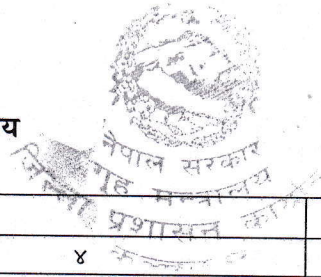 य
नेपाल सरकार
गृह मन्त्रालय
जिल्ला प्रशासन
४